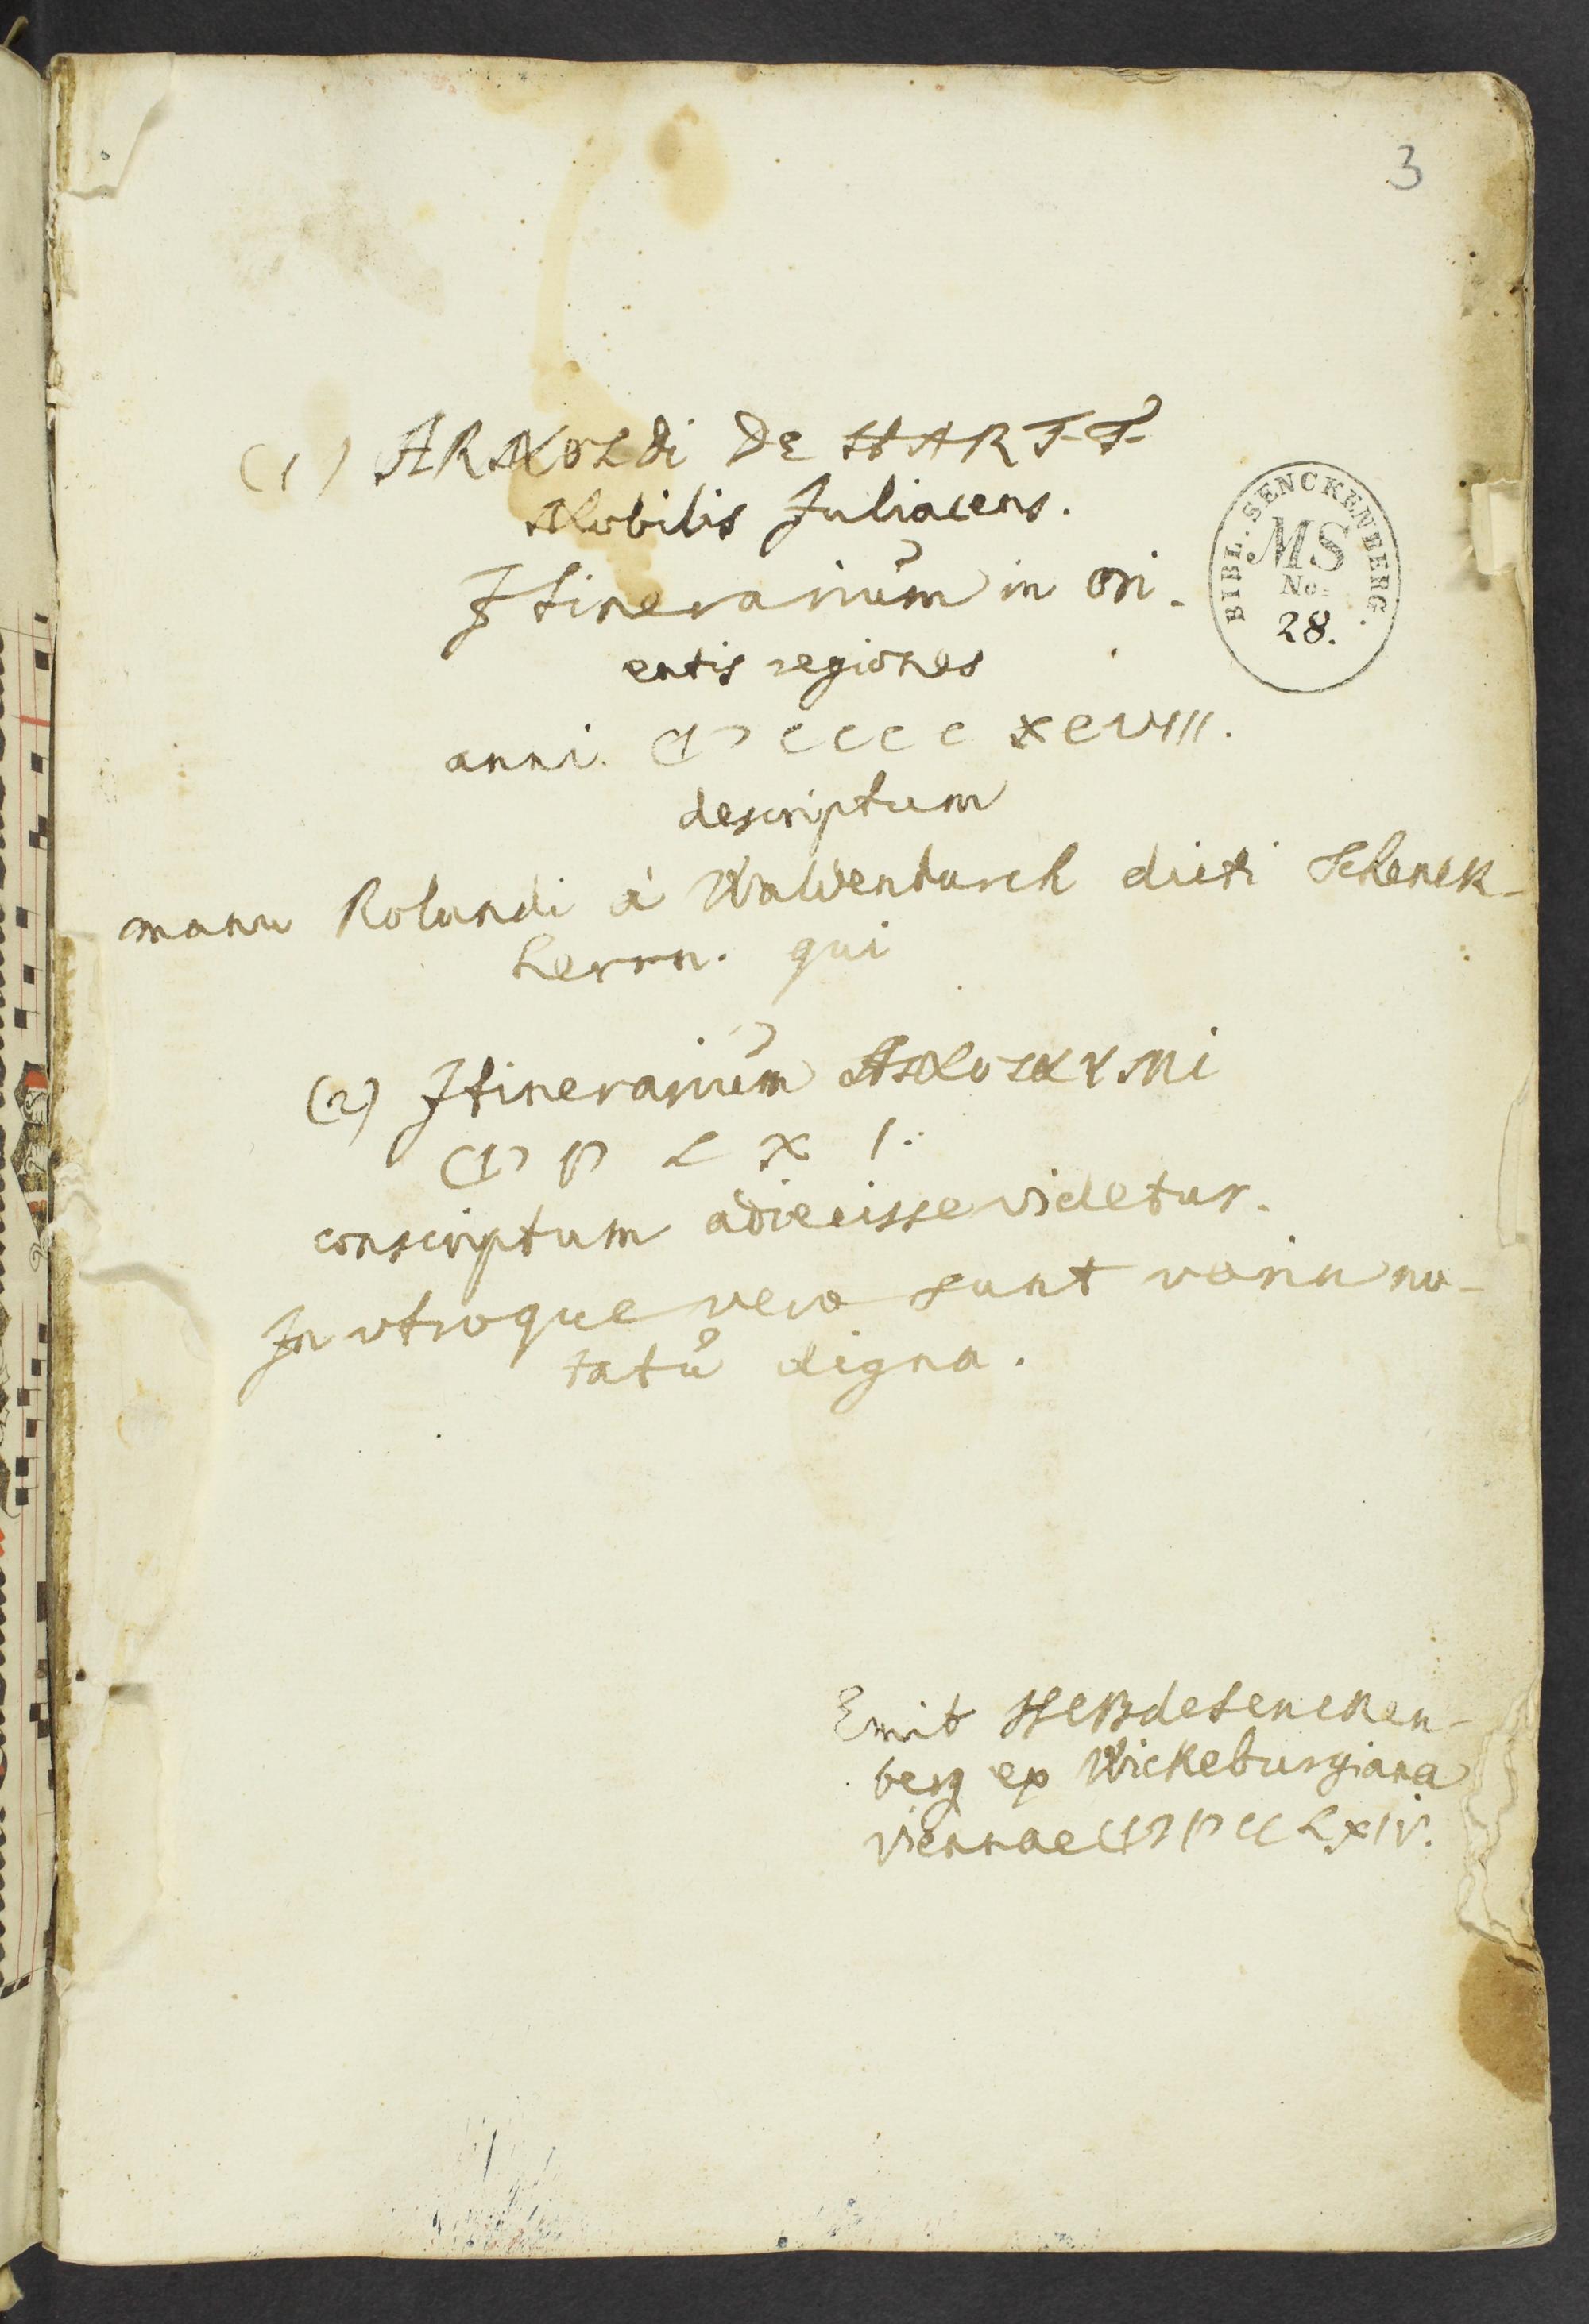 3
(1) ARNOLDi DE HARFF
Nobilis Juliacens.
Itinerariŭm in ori-
entis regiones
anni. CIƆ CCCC XCVIII.
descriptum
manu Rolandi à Walvendursch dicti Schenck-
herrn. qui
BIBL. SENCKENBERG.
MS
No.
28.
(2) Itinerariŭm ANONYMi
CIƆ IƆ L X I.
conscriptum adiecisse videtur.
In utroque vero sunt varia no-
tatŭ digna.
Emit HCBdeSencken-
berg ex Wickeburgiana
viennae CIƆ IƆ CC LXIV.